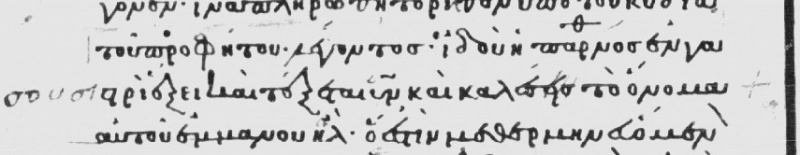 γονεν· ἵνα πληρωθῆ τὸ ρηθὲν ὑπὸ τοῦ κυ δια
τοῦ προφήτου· λέγοντος· ἰδοὺ ἡ παρθνοσ ἐν γα
στρὶ ἕξει καὶ τέξεται υν καὶ καλέσεισ τὸ ὄνομα
αὐτοῦ ἐμμανουήλ· ὅ ἐστὶν μεθερμηνευόμενν